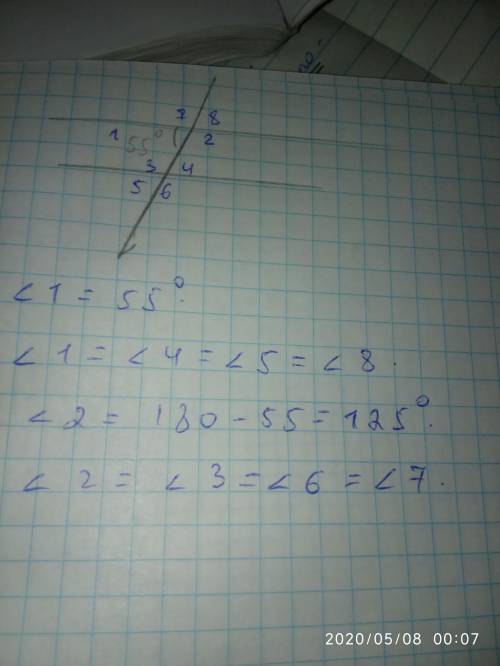 7 8
1 55° 2
3 4
5 6
< 1 = 55°.
< 1 = < 4 = < 5 = < 8.
< 2 = 180 - 55 = 125°.
< 2 = < 3 = < 6 = < 7.
2020/05/08 00:07